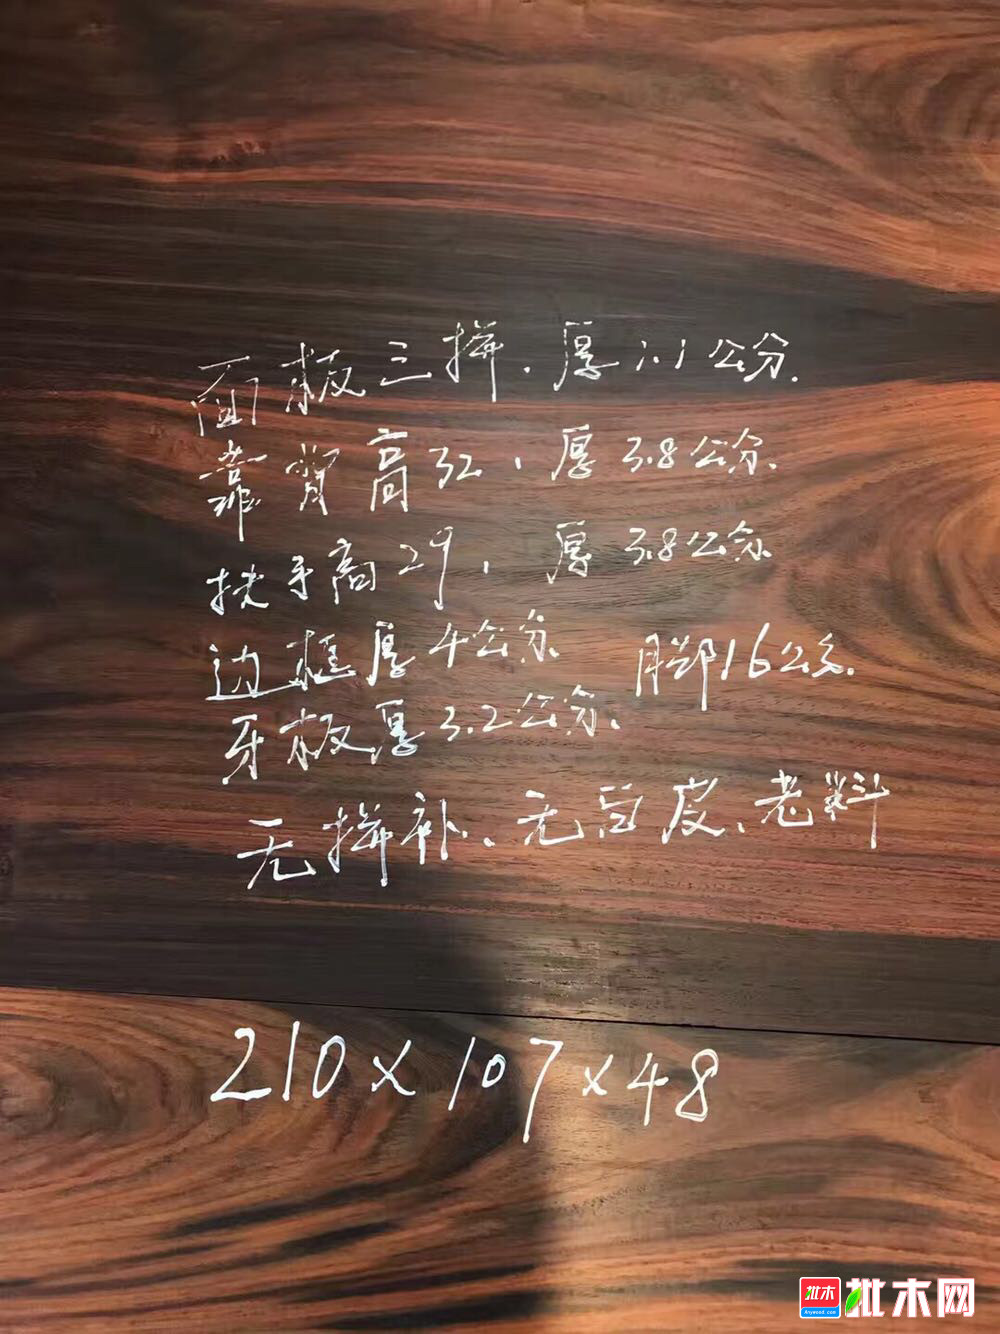 面板三拼.厚1.1公分.
靠背高32,厚3.8公分.
扶手高29,厚3.8公分.
边框厚4公分. 脚16公分.
牙板厚3.2公分.
无拼补、无白皮、老料
210×107×48
批木
Anywood.com
批木网